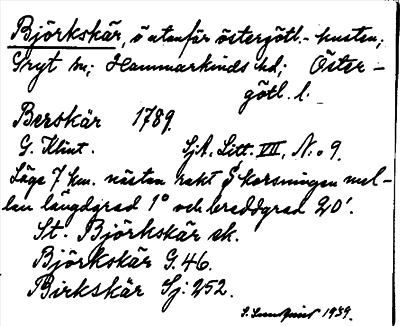 Björkskär, ö utanför östergötl.-kusten;
Gryt sn; Hammarkinds hd; Öster-
götl. l.
Berskär 1789.
G. Klint. SjA, Litt. VIII, N:o 9.
Läge 7 km. nästan rakt S korsningen mel-
lan längdgrad 1° och breddgrad 20'.
St. Björkskär sk.
Björkskär G. 46.
Birkskär Sj: 252.
S. 1939.